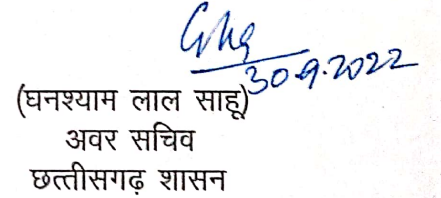 30.9.2022
(घनश्याम लाल साहू)
अवर सचिव
छत्तीसगढ़ शासन